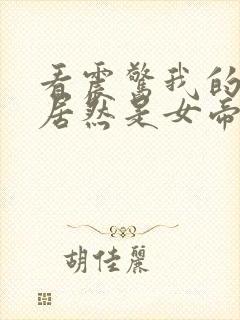 看震驚我的
居然是女帝
胡佳麗